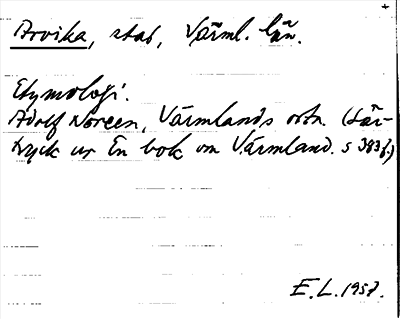 Arvika, stad, Värml. län.
Etymologi.
Adolf Noreen, Värmlands ortn. (Sär-
tryck ur En bok om Värmland. s 383f.)
E.L. 1957.